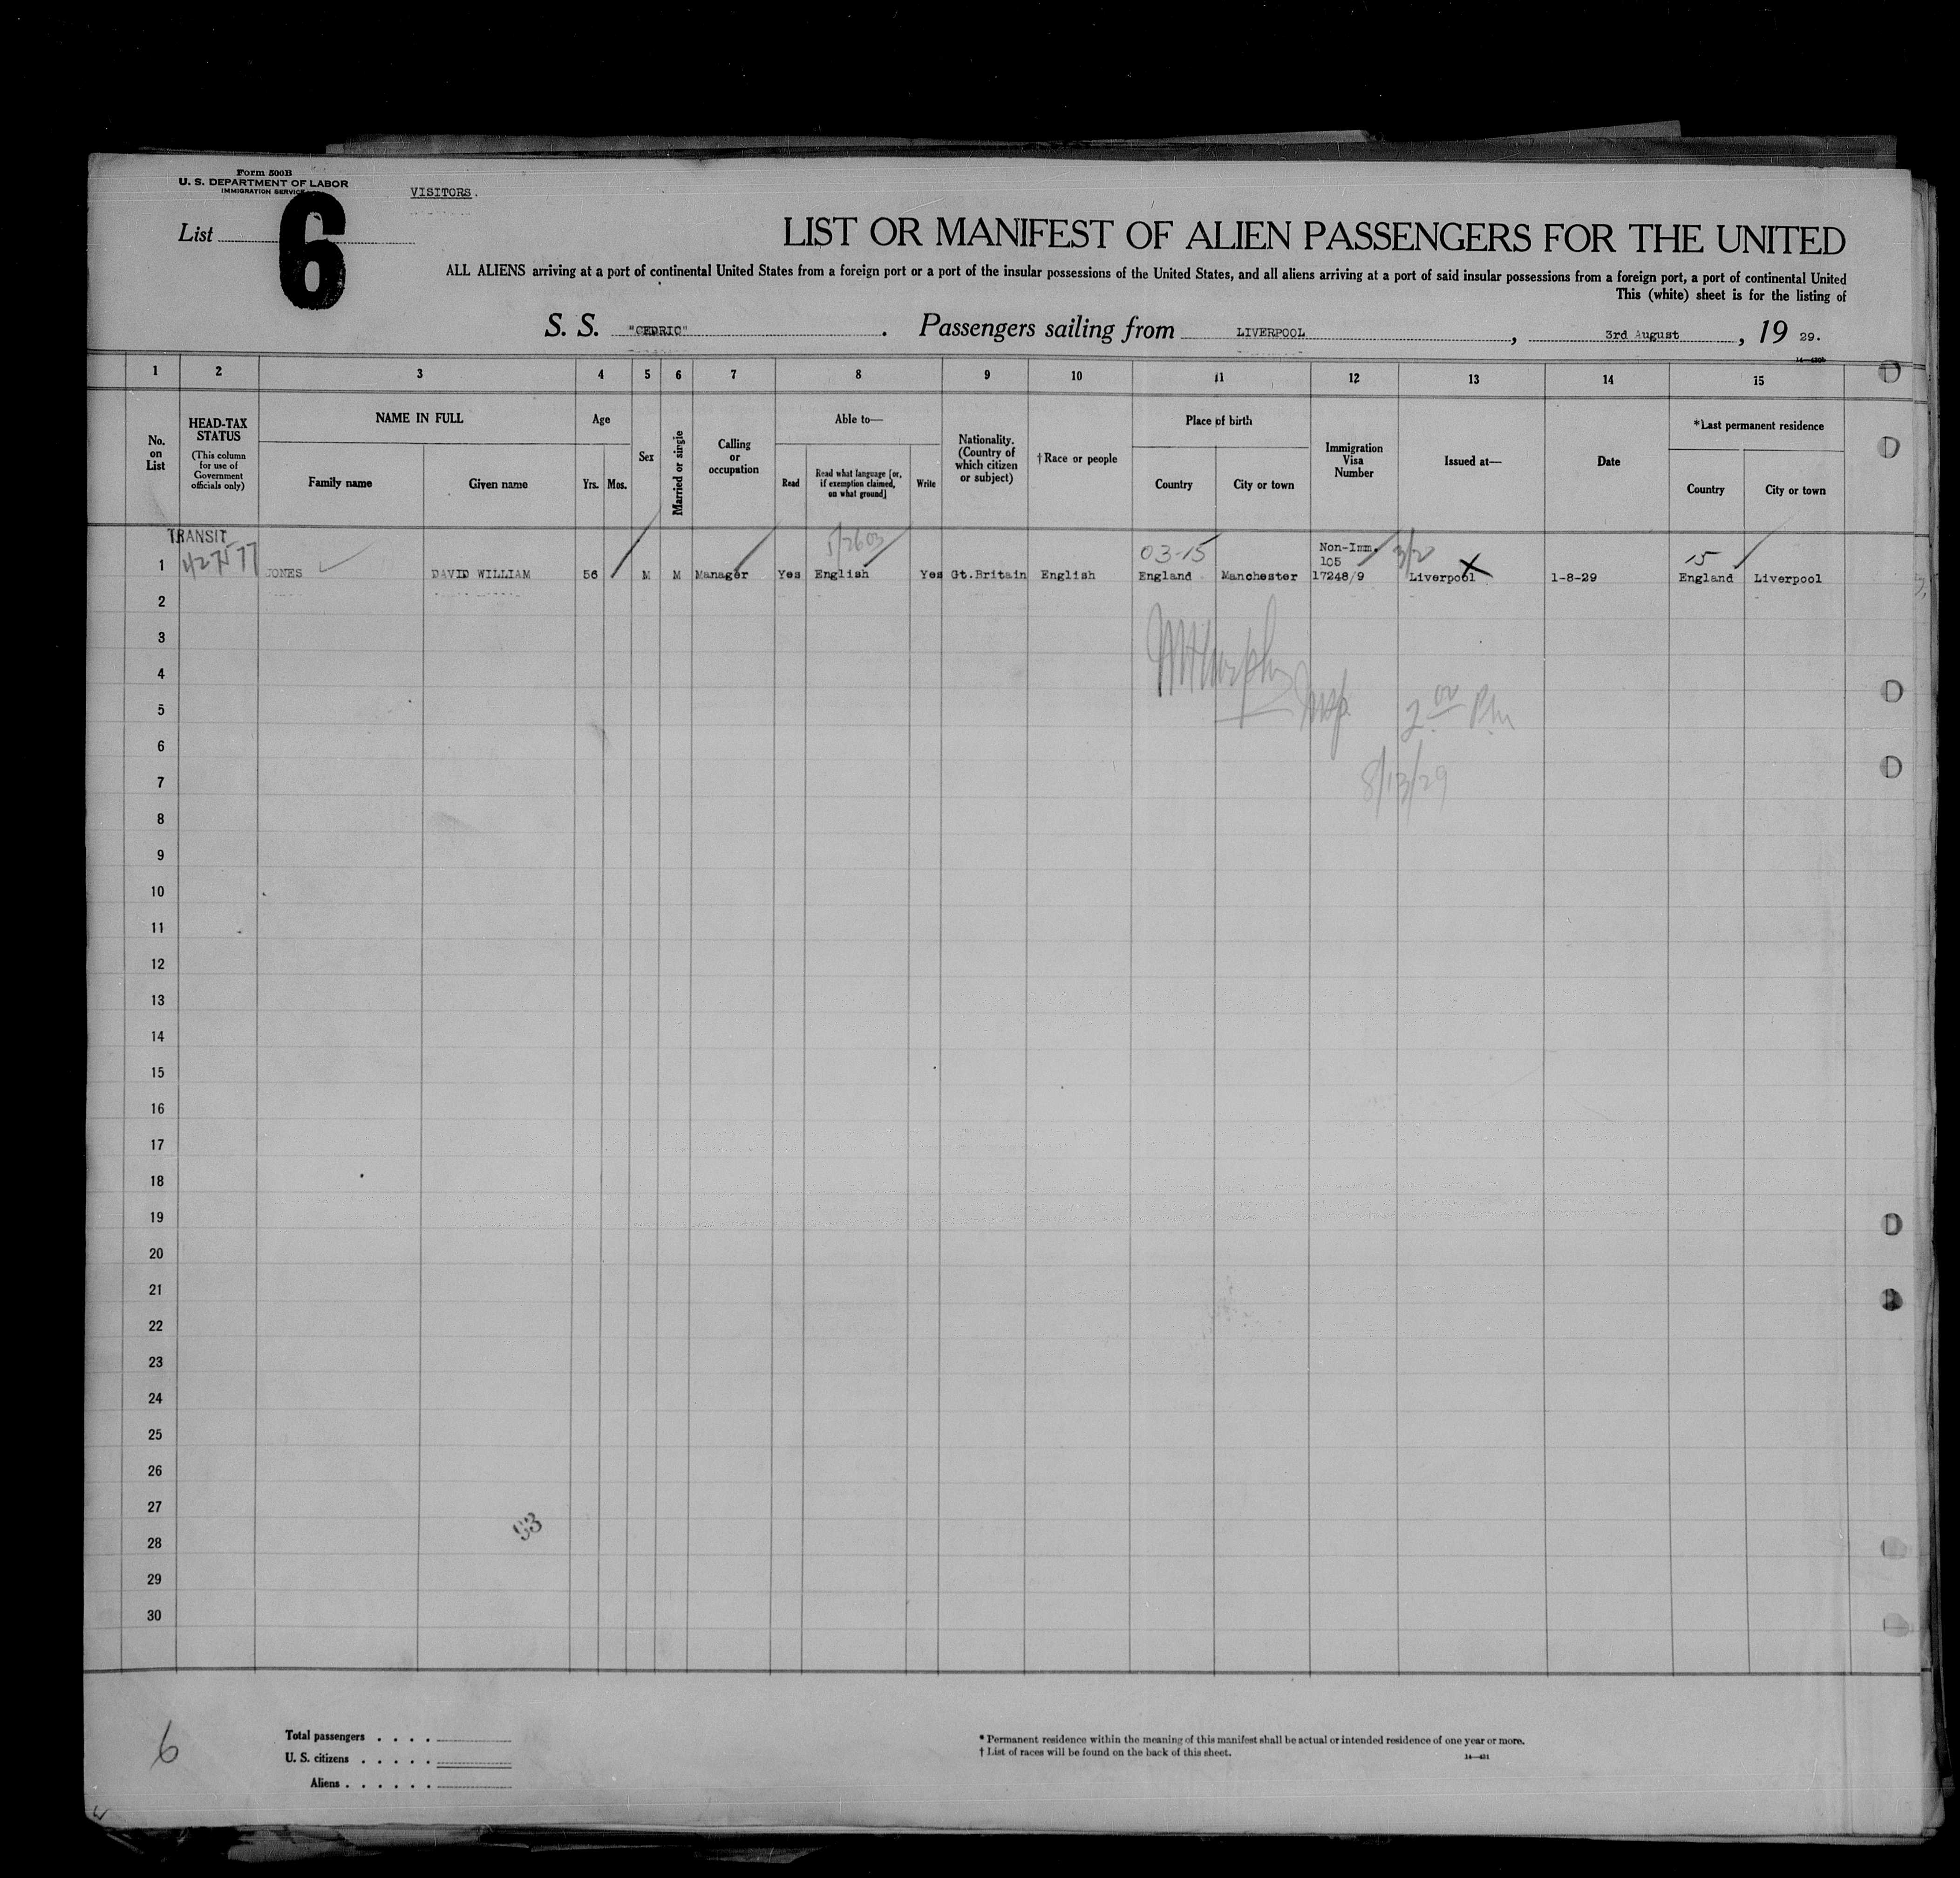 Form 500B
U. S. DEPARTMENT OF LABOR
IMMIGRATION SERVICE
VISITORS.
List 6
LIST OR MANIFEST OF ALIEN PASSENGERS FOR THE UNITED
ALL ALIENS arriving at a port of continental United States from a foreign port or a port of the insular possessions of the United States, and all aliens arriving at a port of said insular possessions from a foreign port, a port of continental United
This (white) sheet is for the listing of
S. S. "CEDRIC". Passengers sailing from LIVERPOOL, 3rd August, 19 29.
1 2 3 4 5 6 7 8 9 10 11 12 13 14 15
No. on List
HEAD-TAX STATUS
(This column for use of Government officials only)
NAME IN FULL
Family name
Given name
Age
Yrs. Mos.
Sex
Married or single
Calling or occupation
Able to—
Read
Read what language [or, if exemption claimed, on what ground]
Write
Nationality. (Country of which citizen or subject)
† Race or people
Place of birth
Country
City or town
Immigration Visa Number
Issued at—
Date
*Last permanent residence
Country
City or town
TRANSIT
5/2603
03-15
Non-Imm. 3/2
15
105
1 427577 JONES DAVID WILLIAM 56 M M Manager Yes English Yes Gt.Britain English England Manchester 17248/9 Liverpool 1-8-29 England Liverpool
2
3
Murphy
4
Insp.
5
2 00 Pm
6
7
8/13/29
8
9
10
11
12
13
14
15
16
17
18
19
20
21
22
23
24
25
26
27
93
28
29
30
6
Total passengers . . . .
U. S. citizens . . . . .
Aliens . . . . . .
* Permanent residence within the meaning of this manifest shall be actual or intended residence of one year or more.
† List of races will be found on the back of this sheet.
14—431